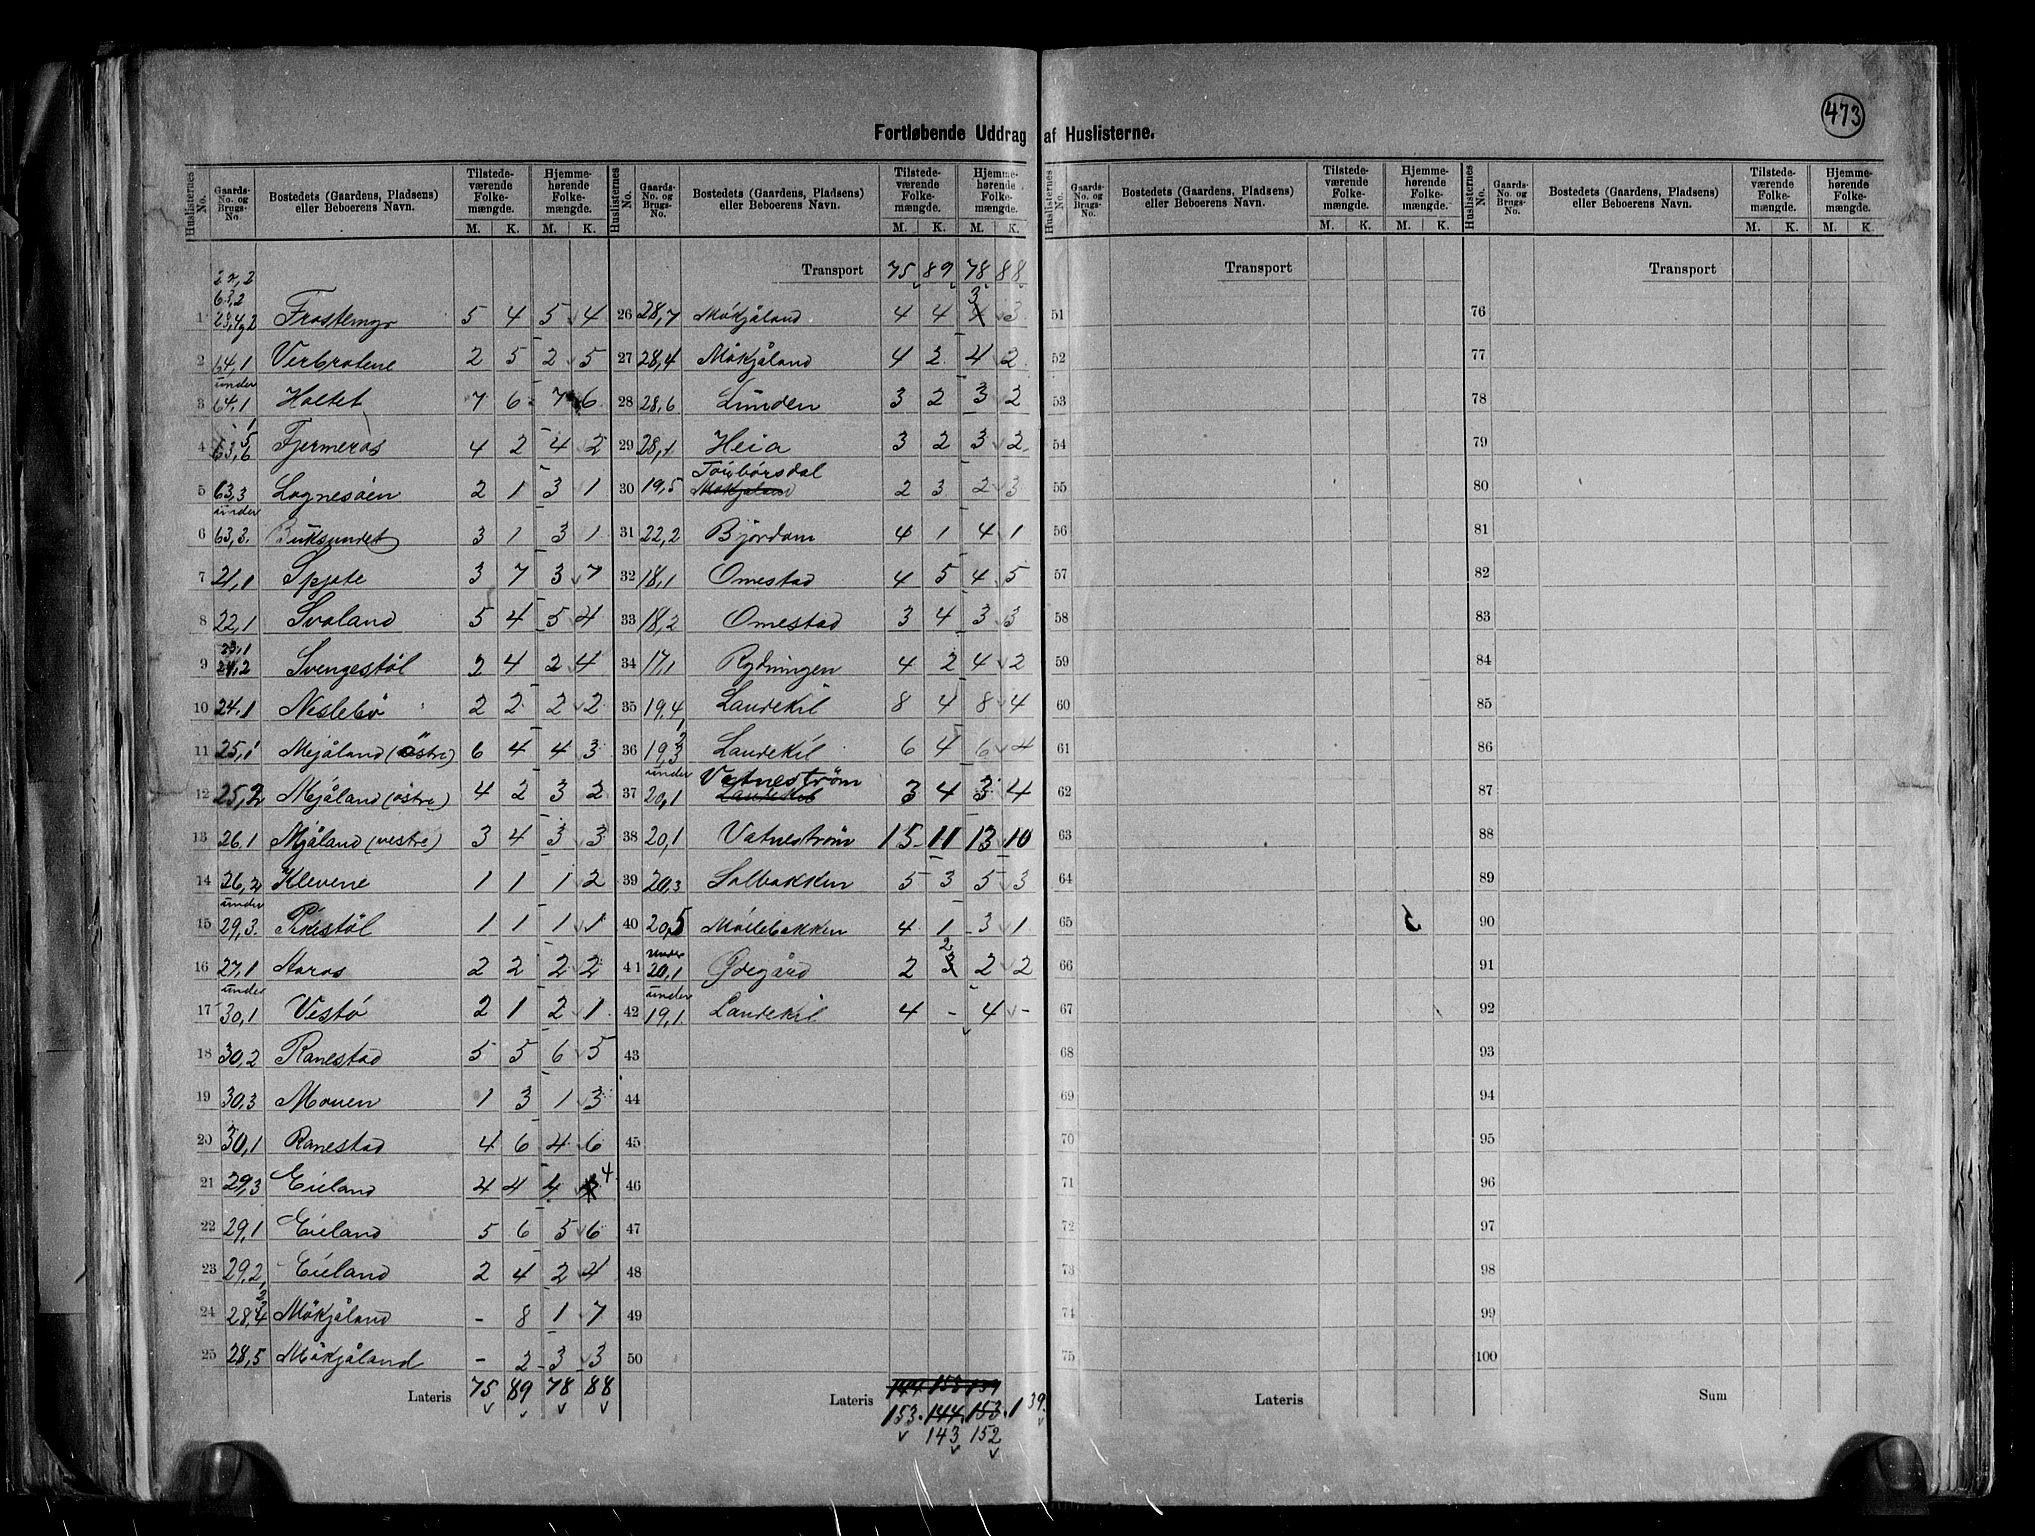 473
Fortløbende Uddrag af Huslisterne.
Huslisternes No. Gaards-No. og Brugs-No. Bostedets (Gaardens, Pladsens) eller Beboerens Navn. Tilstedeværende Folkemængde. M. K. Hjemmehørende Folkemængde. M. K.
1 27,2 63,2 28,4,2 Frostemyr 5 4 5 4
2 64,1 Verbratene 2 5 2 5
3 under 64,1 Holtet 7 6 7 6
4 63,6 Fjermeros 4 2 4 2
5 63,3 Lognesøen 2 1 3 1
6 under 63,3. Buksundet 3 1 3 1
7 21,1 Spjote 3 7 3 7
8 22,1 Svaland 5 4 5 4
9 23,1 24,2 Svengestøl 2 4 2 4
10 24,1 Neslebø 2 2 2 2
11 25,1 Mjåland (östre) 6 4 4 3
12 25,2 Mjåland (östre) 4 2 3 2
13 26,1 Mjåland (vestre) 3 4 3 3
14 26,2 Klevene 1 1 1 2
15 under 29,3. Pikestöl 1 1 1 1
16 27,1 Aaros 2 2 2 2
17 under 30,1 Vestø 2 1 2 1
18 30,2 Ranestad 5 5 6 5
19 30,3 Mouen 1 3 1 3
20 30,1 Ranestad 4 6 4 6
21 29,3 Eieland 4 4 4 4
22 29,1 Eieland 5 6 5 6
23 29,2 Eieland 2 4 2 4
24 28,4 Mökjåland - 8 1 7
25 28,5 Mökjåland - 2 3 3
Lateris 75 89 78 88
Huslisternes No. Gaards-No. og Brugs-No. Bostedets (Gaardens, Pladsens) eller Beboerens Navn. Tilstedeværende Folkemængde. M. K. Hjemmehørende Folkemængde. M. K.
Transport 75 89 78 88
26 28,7 Mökjåland 4 4 3 3
27 28,4 Mökjåland 4 2 4 2
28 28,6 Lunden 3 2 3 2
29 28,1 Heia 3 2 3 2
30 19,5 Toubørsdal Mökjåland 2 3 2 3
31 22,2 Bjordam 4 1 4 1
32 18,1 Omestad 4 5 4 5
33 18,2 Omestad 3 4 3 3
34 17,1 Rydningen 4 2 4 2
35 19,4 Laudekil 8 4 8 4
36 19,3 Laudekil 6 4 6 4
37 under 20,1 Vatneström Laudekil 3 4 3 4
38 20,1 Vatneström 15 11 13 10
39 20,3 Solbakken 5 3 5 3
40 20,5 Möllebakken 4 1 3 1
41 under 20,1 Ødegård 2 2 2 2
42 under 19,1. Laudekil 4 - 4 -
43
44
45
46
47
48
49
50
Lateris 144 153 139
153. 144. 153. 139.
143 152
Huslisternes No. Gaards-No. og Brugs-No. Bostedets (Gaardens, Pladsens) eller Beboerens Navn. Tilstedeværende Folkemængde. M. K. Hjemmehørende Folkemængde. M. K.
Transport
51
52
53
54
55
56
57
58
59
60
61
62
63
64
65
66
67
68
69
70
71
72
73
74
75
Lateris
Huslisternes No. Gaards-No. og Brugs-No. Bostedets (Gaardens, Pladsens) eller Beboerens Navn. Tilstedeværende Folkemængde. M. K. Hjemmehørende Folkemængde. M. K.
Transport
76
77
78
79
80
81
82
83
84
85
86
87
88
89
90
91
92
93
94
95
96
97
98
99
100
Sum